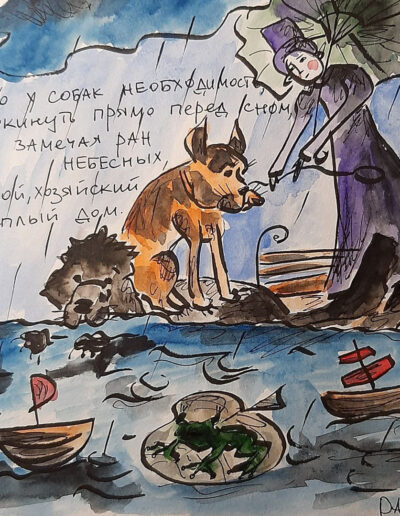 о у собак необходимость
кинуть прямо перед сном,
замечая ран
небесных,
ой, хозяйский
плый дом.